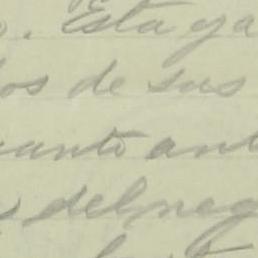 . Esta ya
os de sus
uanto ant
del neg